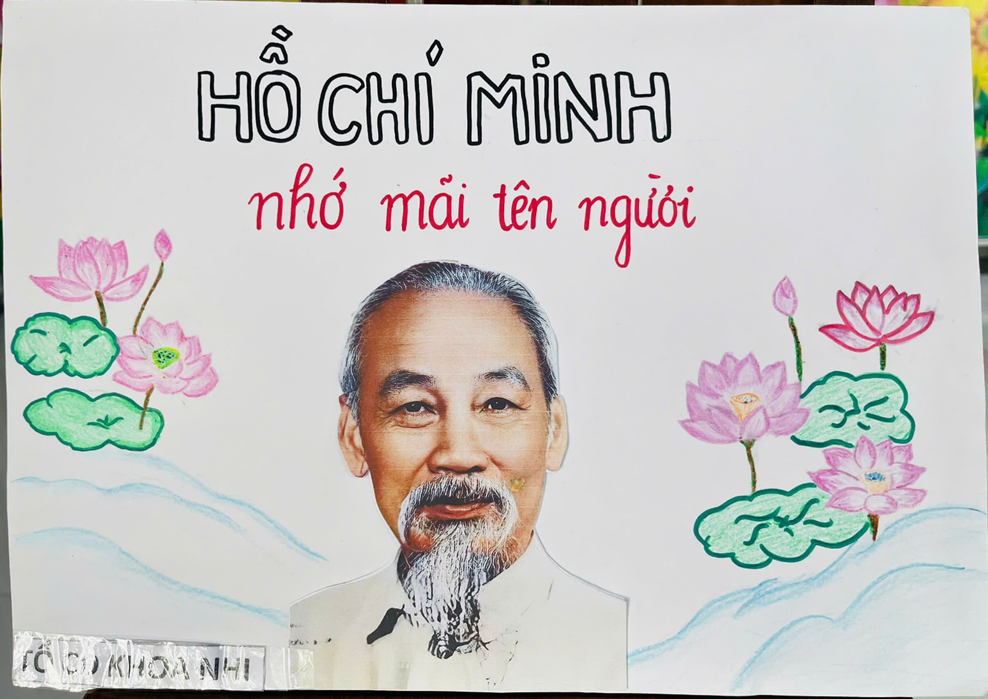 HỒ CHÍ MINH
nhớ mãi tên người
TỔ CĐ KHOA NHI